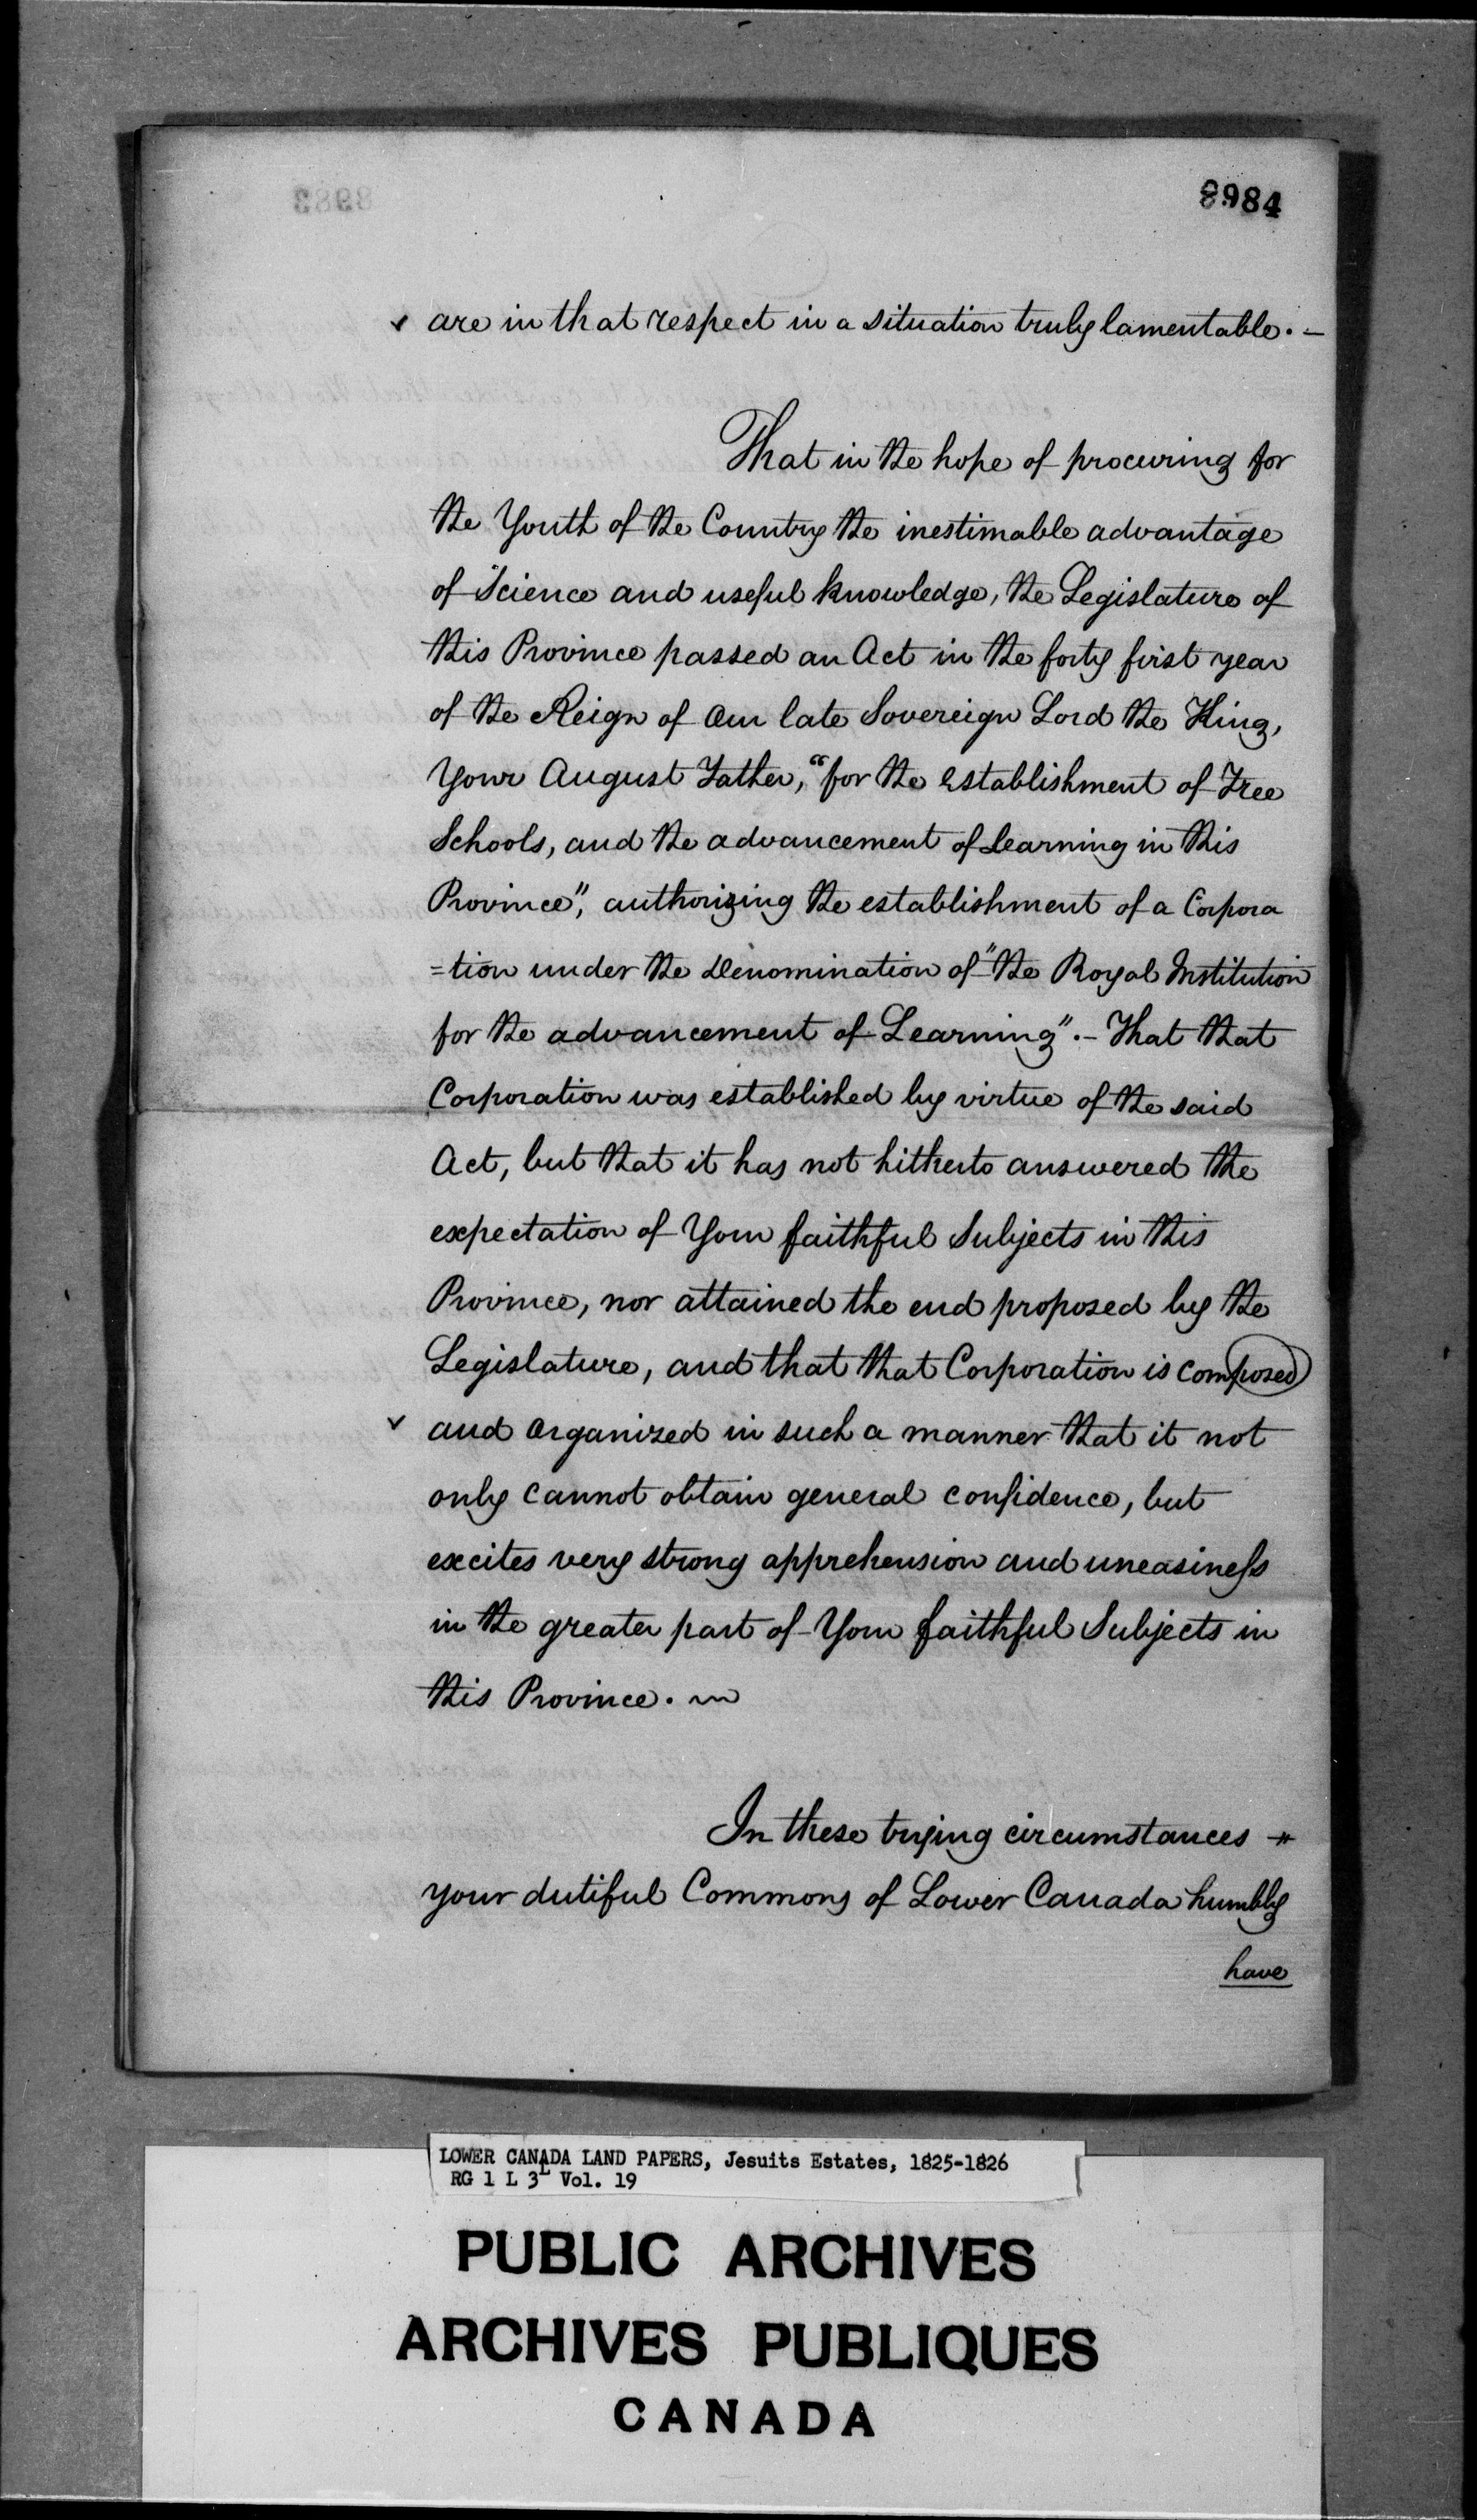 8984
are in that respect in a situation truly lamentable. –
That in the hope of procuring for
the Youth of the Country the inestimable advantage
of Science and useful knowledge, the Legislature of
this Province passed an Act in the forty first year
of the Reign of Our late Sovereign Lord the King,
Your August Father, "for the establishment of Free
Schools, and the advancement of Learning in this
Province", authorizing the establishment of a Corpora
=tion under the Denomination of "the Royal Institution
for the advancement of Learning". – That that
Corporation was established by virtue of the said
Act, but that it has not hitherto answered the
expectation of Your faithful Subjects in this
Province, nor attained the end proposed by the
Legislature, and that that Corporation is composed
and organized in such a manner that it not
only cannot obtain general confidence, but
excites very strong apprehension and uneasiness
in the greater part of Your faithful Subjects in
this Province. ~
In these trying circumstances
your dutiful Commons of Lower Canada humbly
have
LOWER CANADA LAND PAPERS, Jesuits Estates, 1825-1826
RG 1 L 3L Vol. 19
PUBLIC ARCHIVES
ARCHIVES PUBLIQUES
CANADA